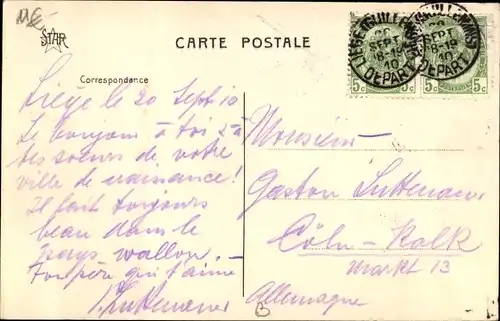 STAR
CARTE POSTALE
Correspondance
LIÈGE (GUILLEMINS)
20
SEPT
8-19
10
DEPART
5c 5c 5c
Liège le 20 Sept 10
Le bonjour à toi & à
tes soeurs de votre
ville de naissance!
Il fait toujours
beau dans le
pays wallon. —
Ton père qui t'aime
Monsieur
Gaston
Cöln-Kalk
Markt 13
Allemagne